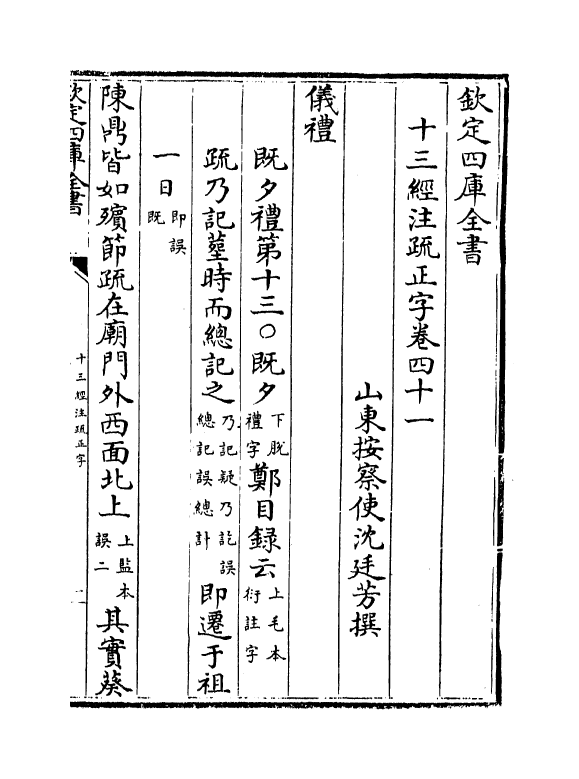 欽定四庫全書
十三經注疏正字卷四十一
山東按察使沈廷芳撰
儀禮
既夕禮第十三○既夕下脱禮字鄭目録云上毛本衍註字
疏乃記塟時而總記之乃記疑乃訖誤總記誤總計即遷于祖
一日即誤既
陳鼎皆如殯節疏在廟門外西面北上上監本誤二其實葵
欽定四庫全書
十三經注疏正字